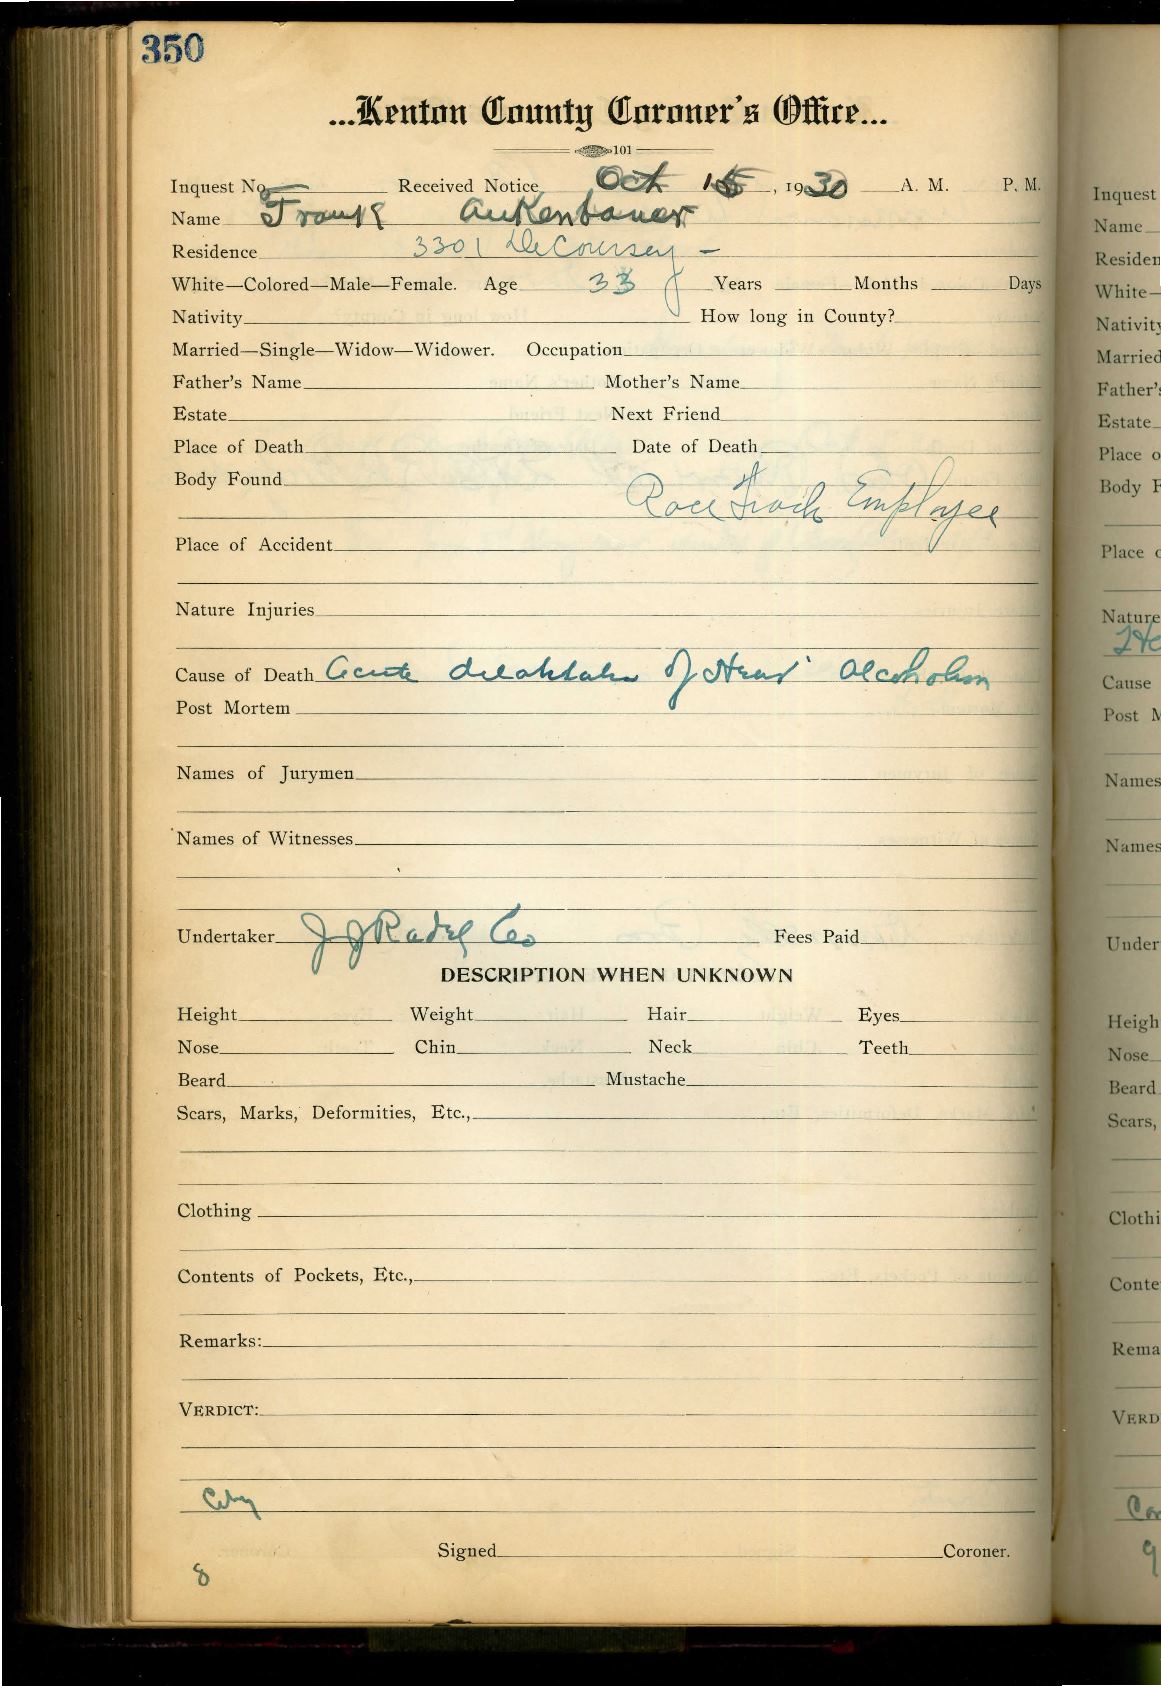 350
...Kenton County Coroner's Office...
101
Inquest No. Received Notice Oct 15, 1930 A. M. P. M.
Name Frank Aukenbauer
Residence 3301 DeCoursey -
White—Colored—Male—Female. Age 33 Years Months Days
Nativity How long in County?
Married—Single—Widow—Widower. Occupation
Father's Name Mother's Name
Estate Next Friend
Place of Death Date of Death
Body Found
Race Track Employee
Place of Accident
Nature Injuries
Cause of Death Acute of Heart Alcoholism
Post Mortem
Names of Jurymen
Names of Witnesses
Undertaker J J Radel Co Fees Paid
DESCRIPTION WHEN UNKNOWN
Height Weight Hair Eyes
Nose Chin Neck Teeth
Beard Mustache
Scars, Marks, Deformities, Etc.,
Clothing
Contents of Pockets, Etc.,
Remarks:
VERDICT:
City
Signed Coroner.
8
Inquest
Name
Residen
White—
Nativity
Married
Father's
Estate
Place o
Body F
Place o
Nature
Cause
Post M
Names
Names
Under
Heigh
Nose
Beard
Scars,
Clothi
Conte
Rema
VERD
9